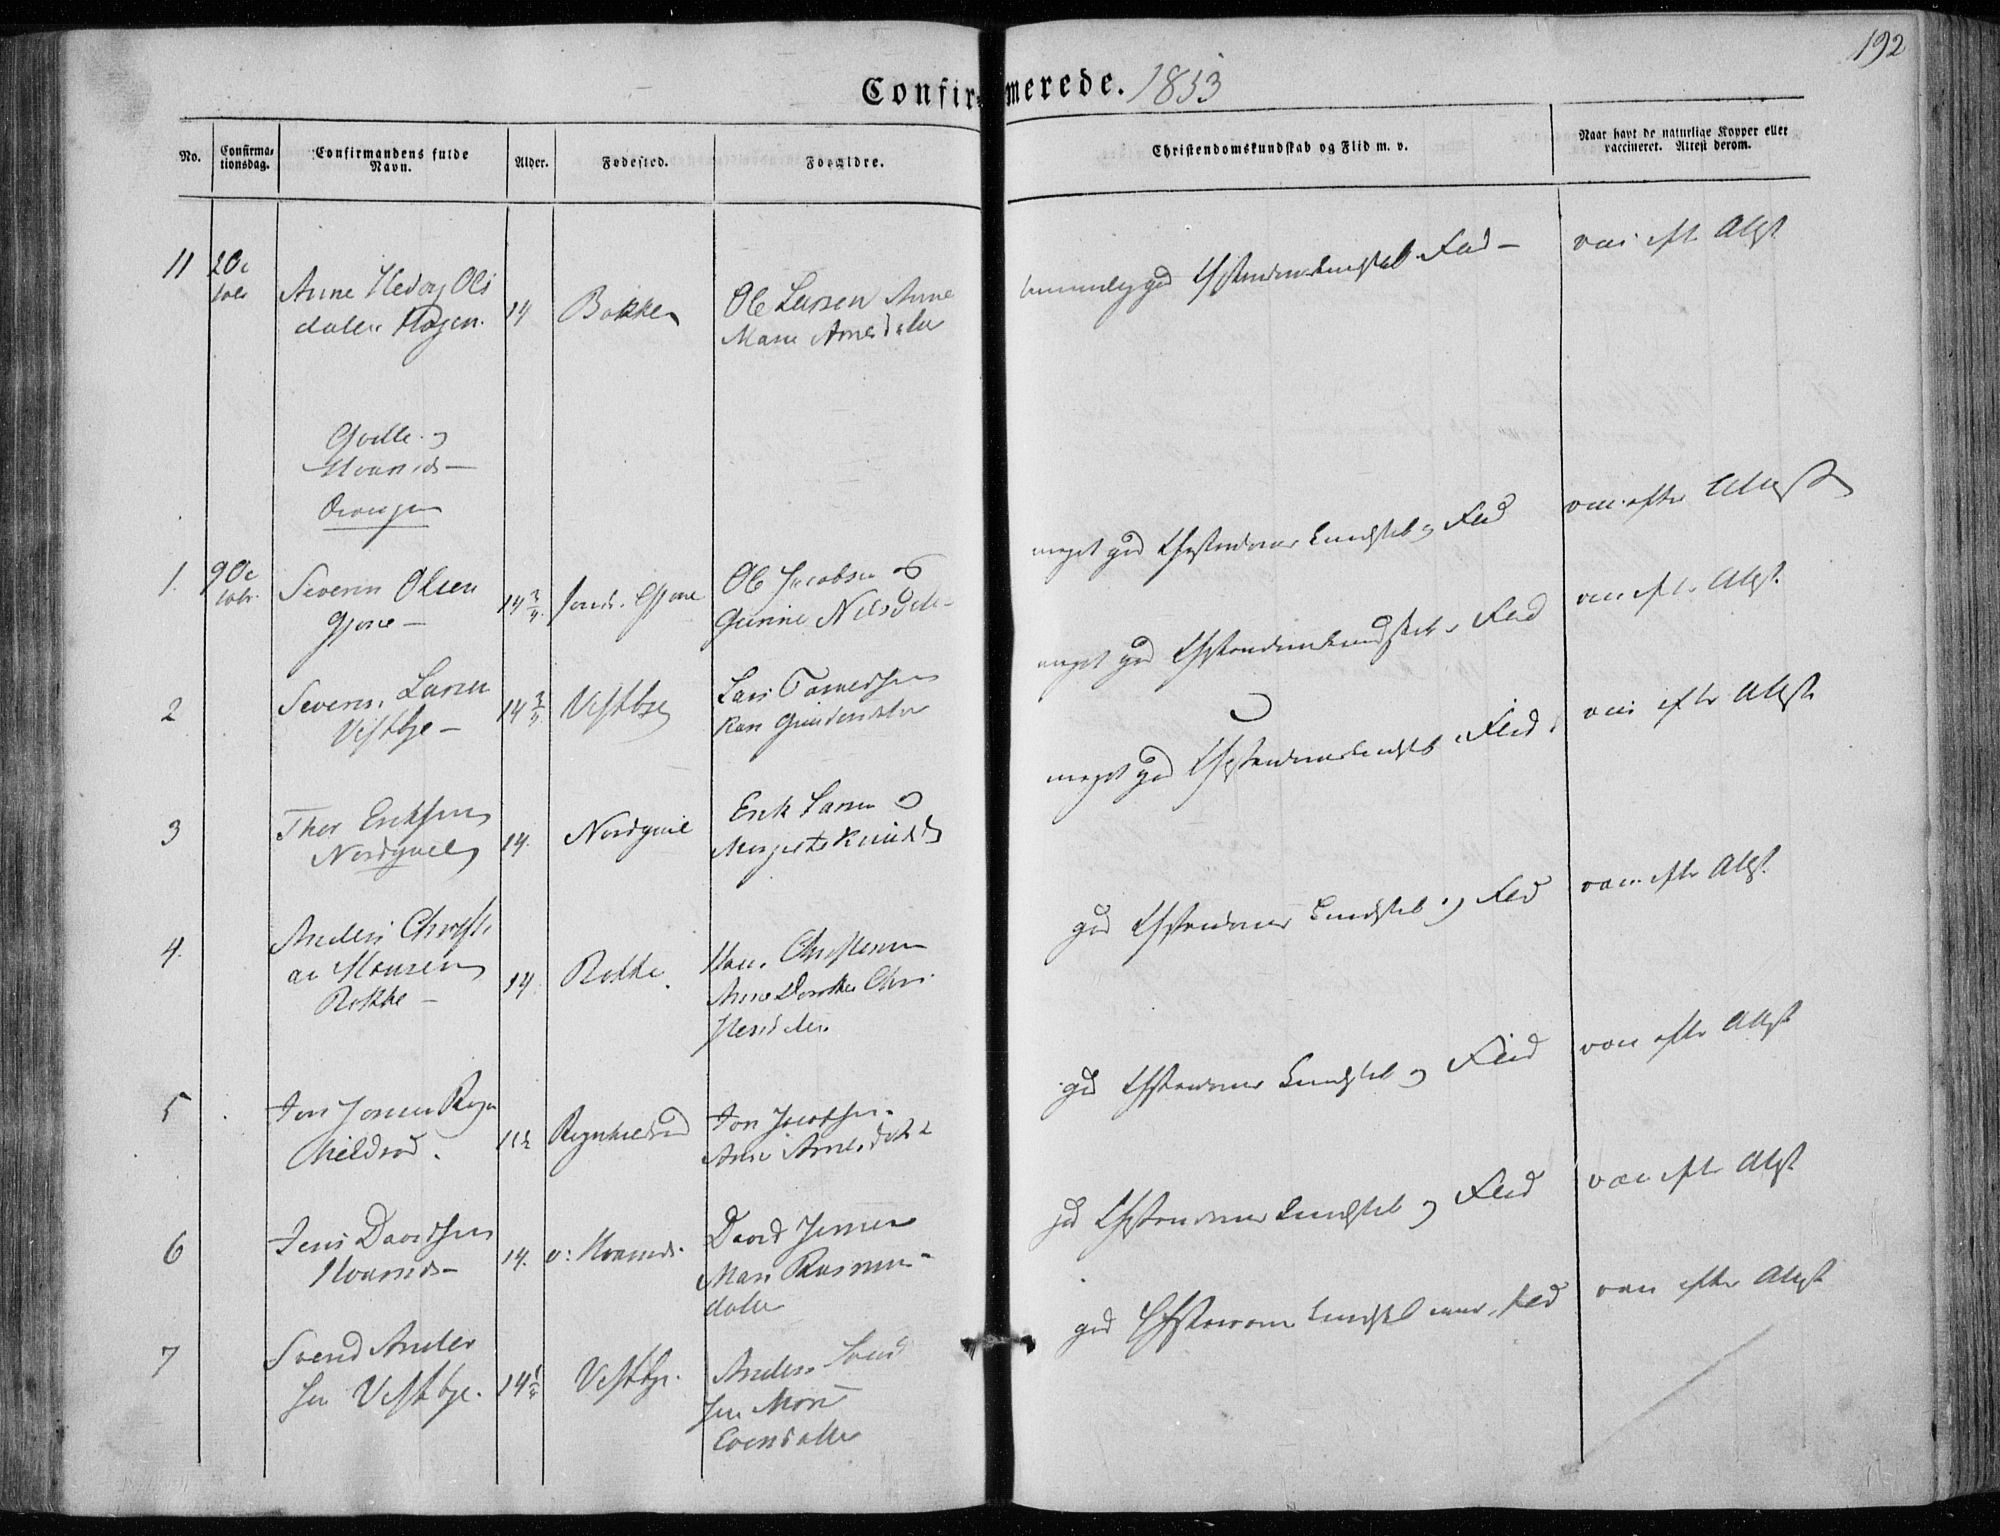 192
Confirmerede. 1853
No.
Confirma-
tionsdag.
Confirmandens fulde
Navn.
Alder.
Fødested.
Forældre.
Christendomskundskab og Flid m. v.
Naar havt de naturlige Kopper eller
vaccineret. Attest derom.
11
2 Oc
tobr
Anne Hedvig Ols
datter Hagen.
14
Bakken
Ole Larsen Anne
Marie Arnesdatter
temmelig god Christendomskundskab Flid –
vac eft Attest
og
Hvarnes –
1.
9 Oc
tobr.
Severin Olsen
Gjone –
14 3/4
Gjone
Ole Jacobsen og
Gunine Nilsdtr –
meget god Christendoms kundskab og Flid
vac. efter Attest
2
Severin Larsen
Vestbye –
14 3/4
Vestbye
Lars
Kari Gundersdatter
meget god Christendomskundskab og Flid
vac efter Attest.
3
Thor Eriksen
Nordqvelle
14.
Erik Larsen og
Margrete Knudsd
meget god Christendomskundskab og Flid
vac efter Attest
4.
Anders Christi
an Hansen
Rokke –
14
Rokke.
Hans Christensen
Anne Dorthea Chri
stensdatter
god Christendoms kundskab og Flid
vac. efter Attest.
5
Jon Jonsen Ragn
hildrød.
Ragnhildrød
Jon Jacobsen.
Anne Arnesdatter
god Christendoms kundskab og Flid
vac efter Attest
6
Jens Davidsen
Hvarnes –
14.
v: Hvarnes.
David Jensen
Mari Rasmus –
datter
god Christendoms kundskab og Flid
vac efter Attest
7
Svend Anders
sen Vestbye.
14 1/4
Vestbye.
Anders Svend
sen
Evensdatter
god Christendoms kundskab Flid
vac efter Attest